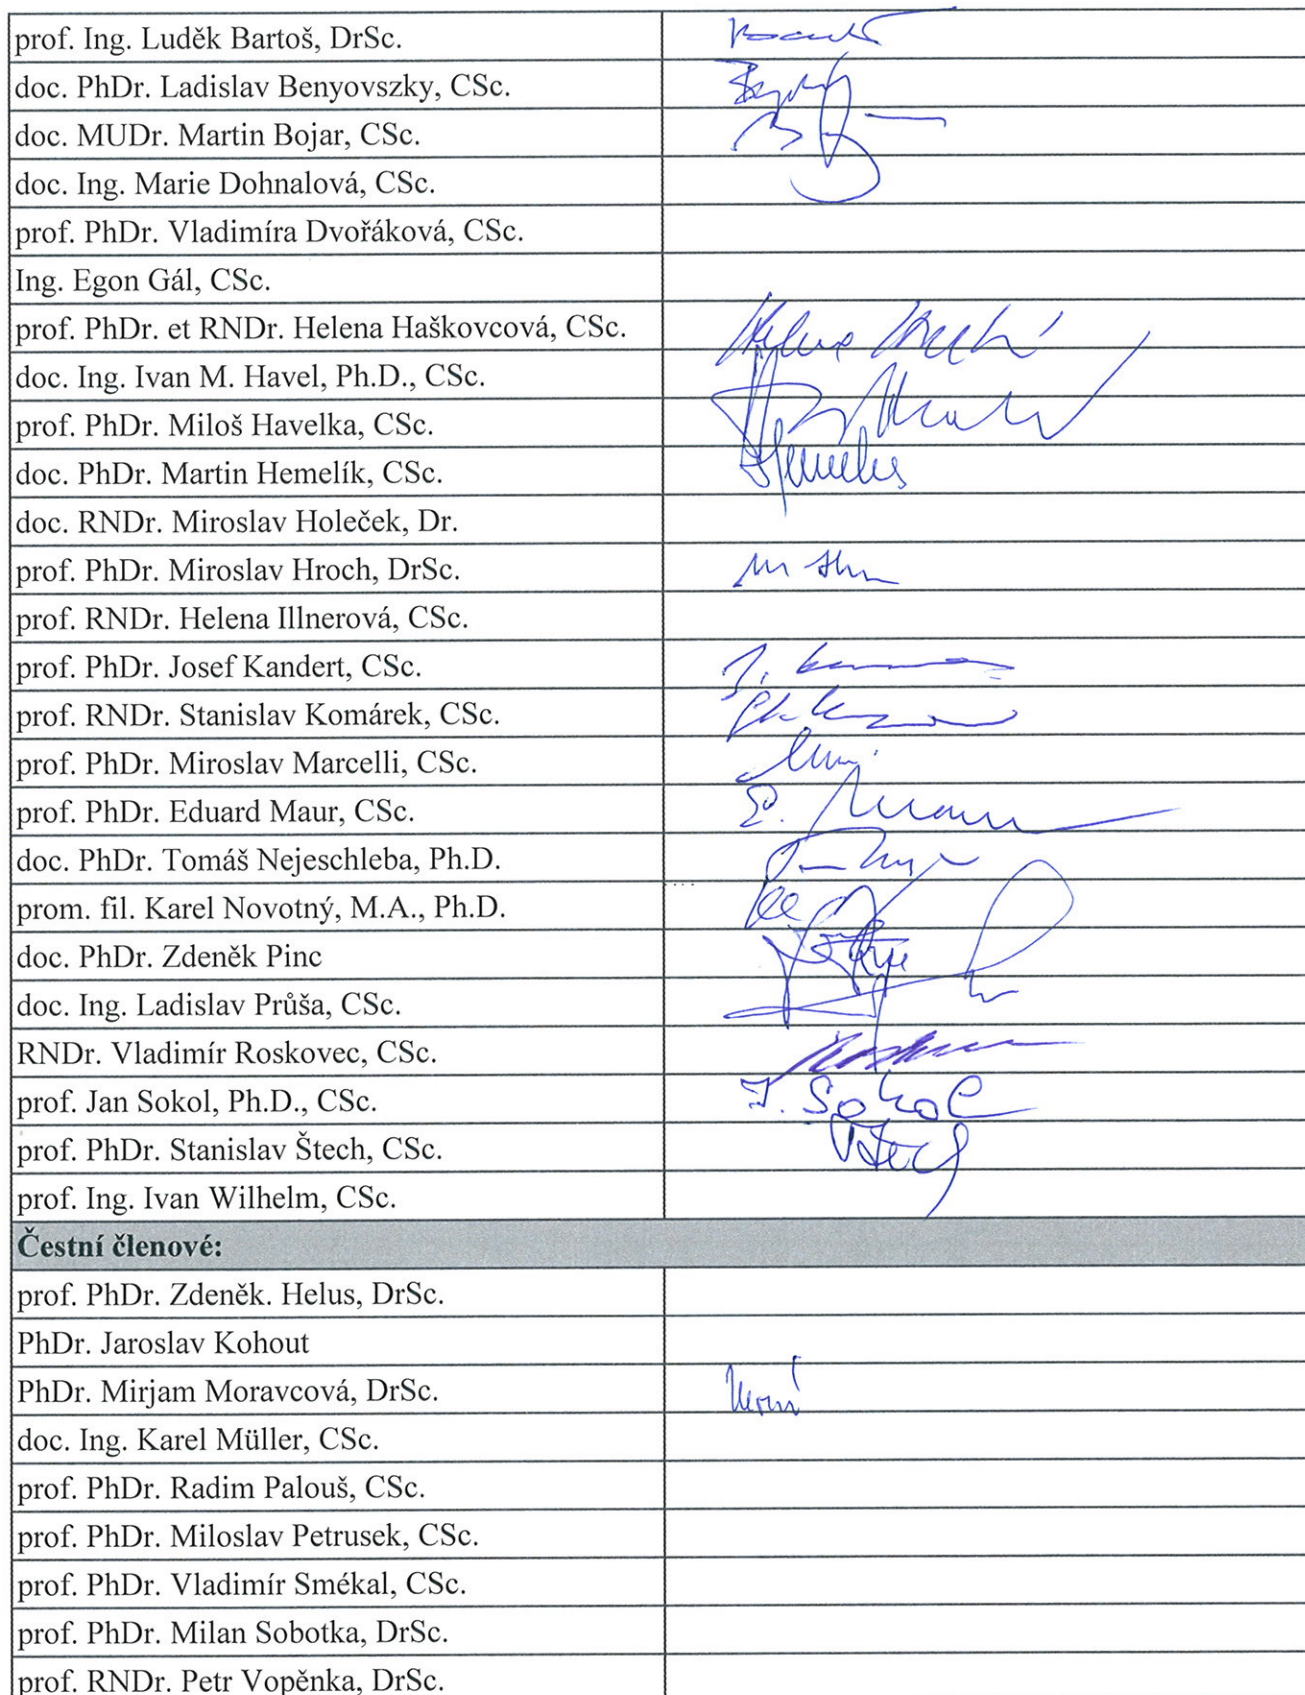 prof. Ing. Luděk Bartoš, DrSc.
doc. PhDr. Ladislav Benyovszky, CSc.
doc. MUDr. Martin Bojar, CSc.
doc. Ing. Marie Dohnalová, CSc.
prof. PhDr. Vladimíra Dvořáková, CSc.
Ing. Egon Gál, CSc.
prof. PhDr. et RNDr. Helena Haškovcová, CSc.
doc. Ing. Ivan M. Havel, Ph.D., CSc.
prof. PhDr. Miloš Havelka, CSc.
doc. PhDr. Martin Hemelík, CSc.
doc. RNDr. Miroslav Holeček, Dr.
prof. PhDr. Miroslav Hroch, DrSc.
prof. RNDr. Helena Illnerová, CSc.
prof. PhDr. Josef Kandert, CSc.
prof. RNDr. Stanislav Komárek, CSc.
prof. PhDr. Miroslav Marcelli, CSc.
prof. PhDr. Eduard Maur, CSc.
doc. PhDr. Tomáš Nejeschleba, Ph.D.
prom. fil. Karel Novotný, M.A., Ph.D.
doc. PhDr. Zdeněk Pinc
doc. Ing. Ladislav Průša, CSc.
RNDr. Vladimír Roskovec, CSc.
prof. Jan Sokol, Ph.D., CSc. J. Sokol
prof. PhDr. Stanislav Štech, CSc.
prof. Ing. Ivan Wilhelm, CSc.
Čestní členové:
prof. PhDr. Zdeněk. Helus, DrSc.
PhDr. Jaroslav Kohout
PhDr. Mirjam Moravcová, DrSc.
doc. Ing. Karel Müller, CSc.
prof. PhDr. Radim Palouš, CSc.
prof. PhDr. Miloslav Petrusek, CSc.
prof. PhDr. Vladimír Smékal, CSc.
prof. PhDr. Milan Sobotka, DrSc.
prof. RNDr. Petr Vopěnka, DrSc.